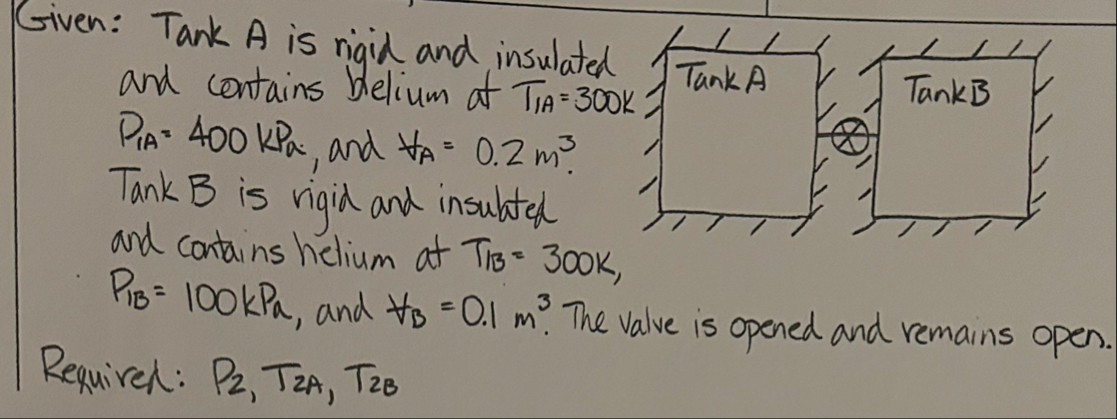 Given: Tank A is rigid and insulated
and contains helium at T1A = 300K
P1A = 400 kPa, and VA = 0.2 m³.
Tank B is rigid and insulated
and contains helium at T1B = 300K,
P1B = 100kPa, and VB = 0.1 m³. The valve is opened and remains open.
Required: P2, T2A, T2B
Tank A
Tank B